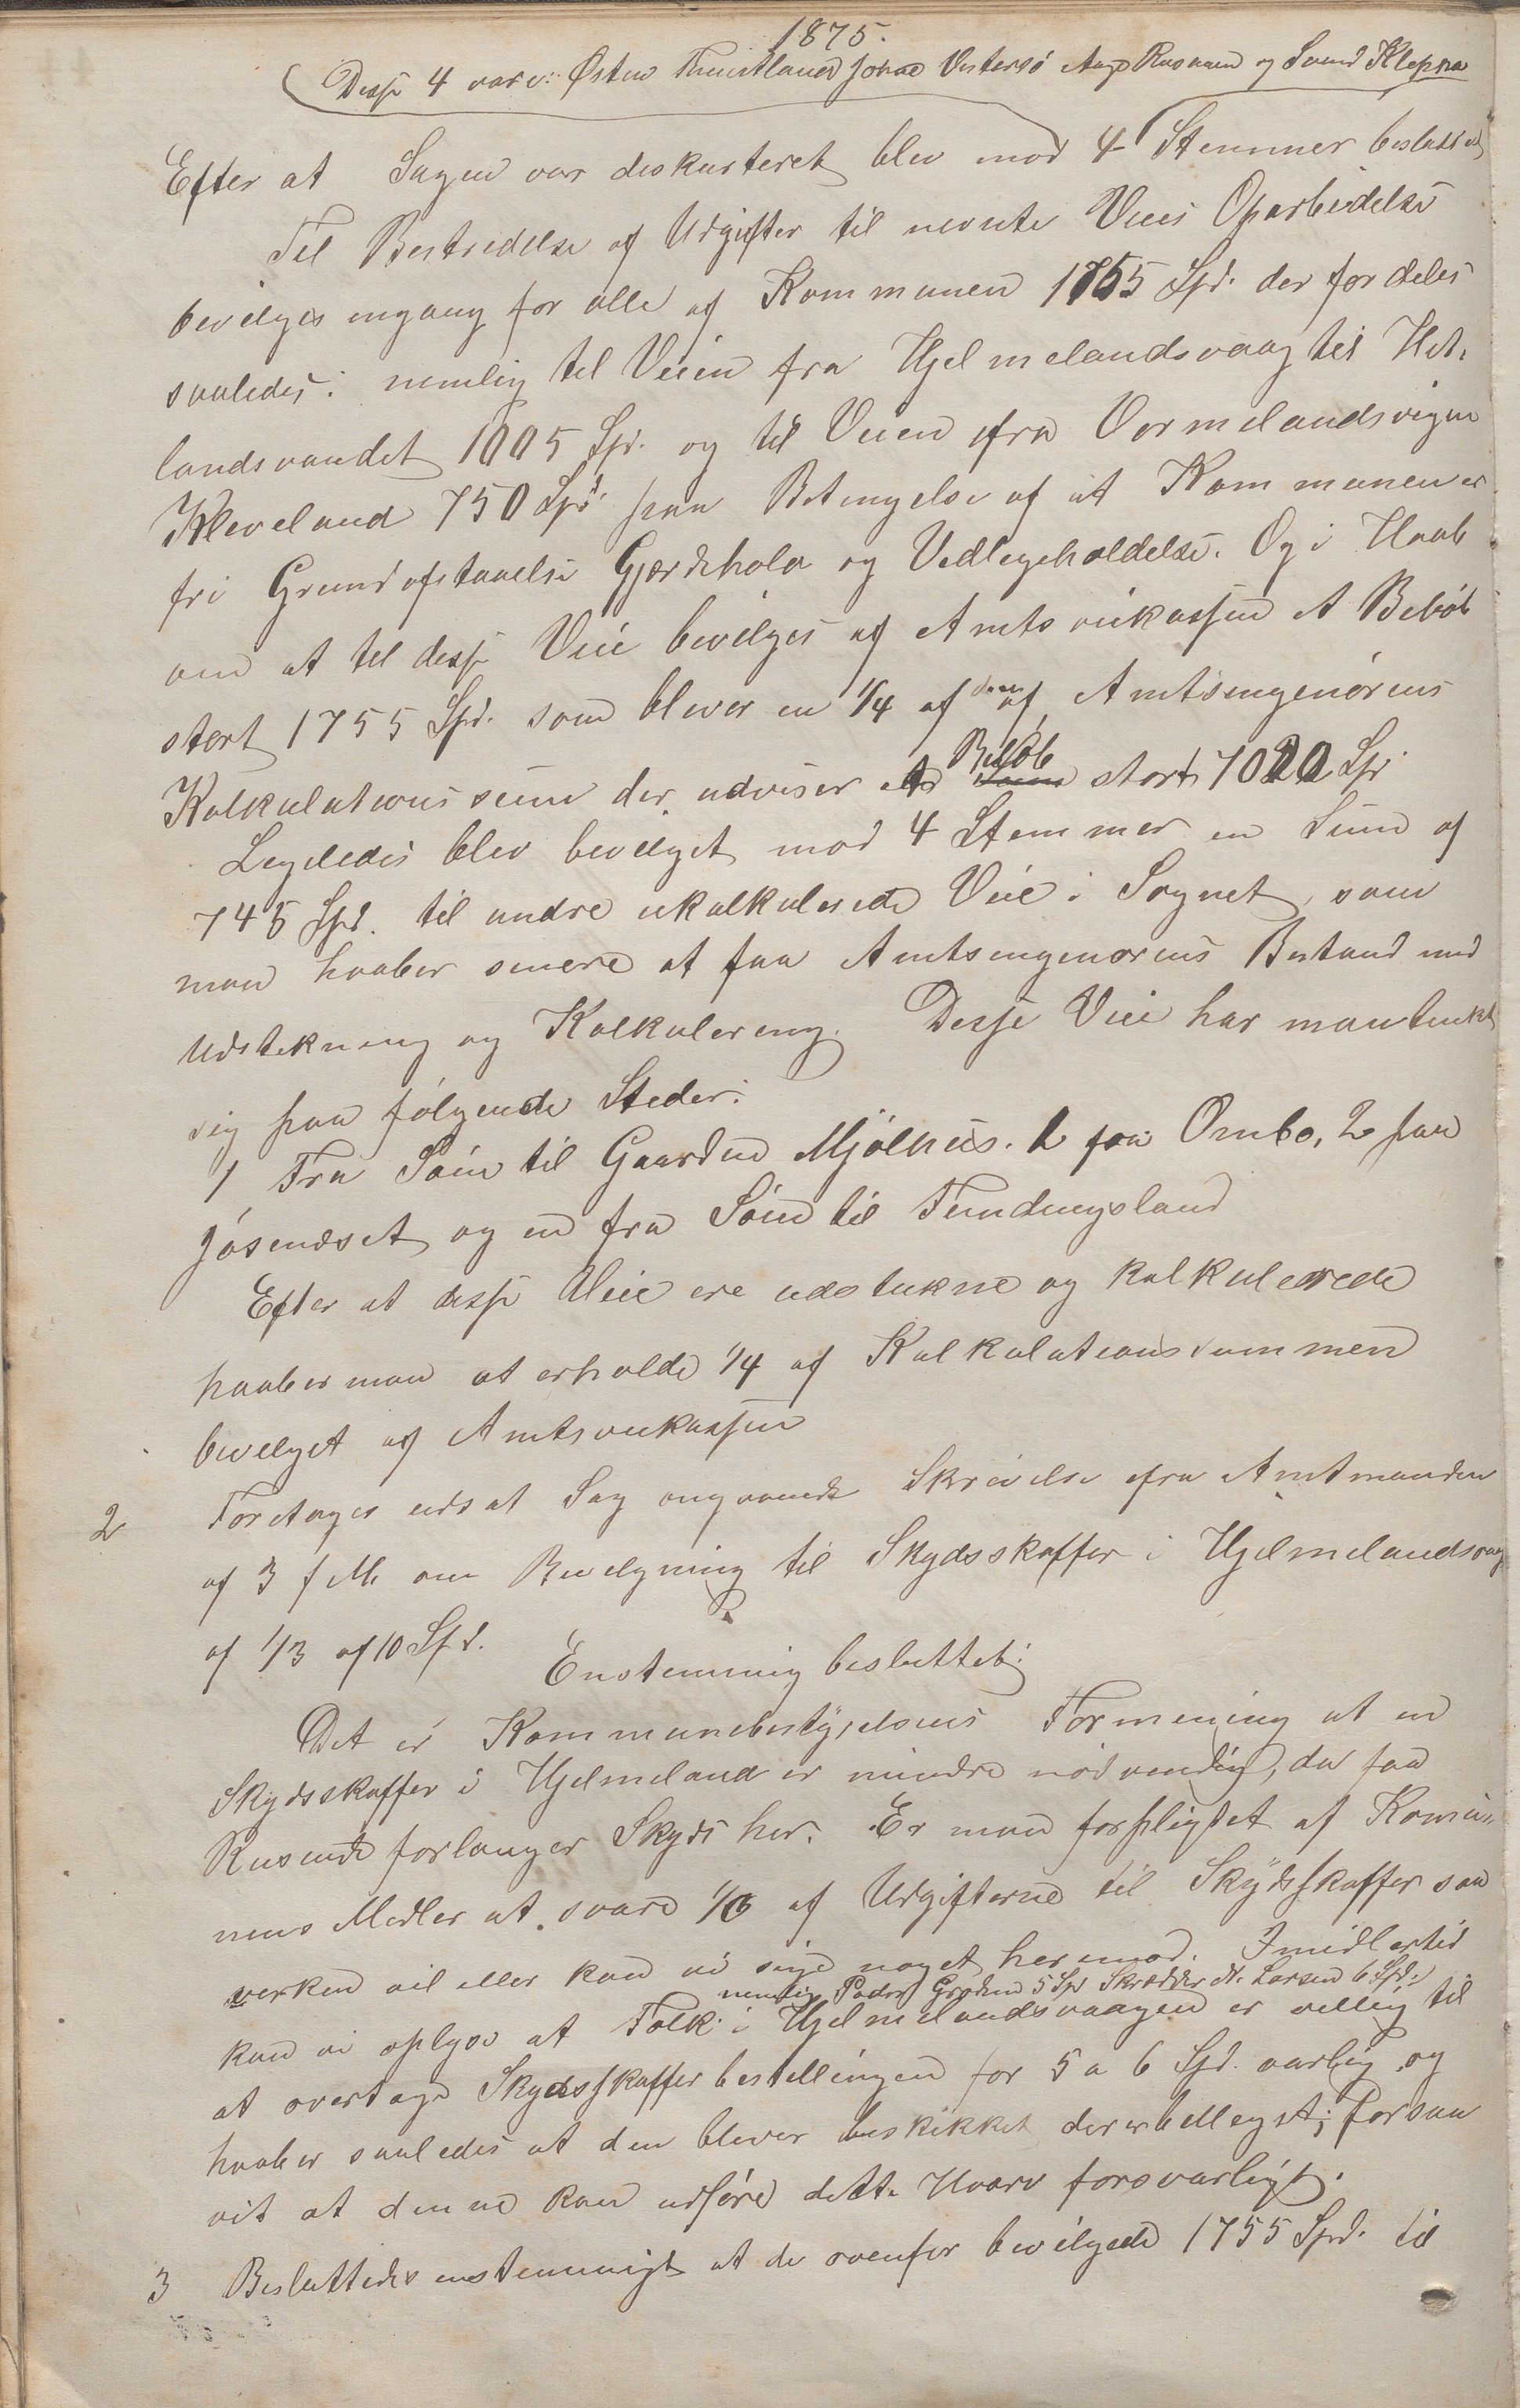 1875.
Disse 4 vare: Østen Johne Vestersø Aage Rosaaen og Svend Kleppa
Efter at Sagen var diskuteret blev mod 4 Stemmer besluttet
Til Bestridelse af Udgifter til nevnte Veies Oparbeidelse
bevilges engang for alle af Kommunen 1755 Spd. der fordeles
saaledes: nemlig til Veien fra Hjelmelandsvaag til Het-
landsvandet 1005 Spd. og til Veien fra Vormelandsvigen
Kleveland 750 Spd. paa Betingelse af at Kommunen er
fri Grundafstaaelse Gjærdehold og Vedligeholdelse. Og i Haab
om at til disse Veie bevilges af Amtsveikassen et Beløb
stort 1755 Spd. som bliver en 1/4 af den af Amtsingeniørens
Kalkulationssum der udviser et Beløb stort 7020 Spd
Ligeledes blev bevilget mod 4 Stemmer en Sum af
745 Spd. til andre ukalkulerede Veie i Sognet, som
man haaber senere at faa Amtsingeniørens Bistand med
Udstikning og Kalkulering. Disse Veie har man tænkt
sig paa følgende Steder:
1 Fra Søin til Gaarden Mjølhus. 2 paa Ombo, 2 paa
Jøsenæset og en fra Søin til Funduingsland
Efter at disse Veie ere udstukne og kalkulerede
haaber man at erholde 1/4 af Kalkulationssummen
bevilget af Amtsveikassen
2 Foretages udsat Sag angaaende Skrivelse fra Amtmanden
af 3 f M. om Bevilgning til Skydsskaffer i Hjelmelandsvaag
af 1/3 af 10 Spd.
Enstemmig besluttet:
Det er Kommunebestyrelsens Formening at en
Skydsskaffer i Hjelmeland er mindre nødvendig, da faa
Reisende forlanger Skyds her. Er man forpligtet af Kommu-
nens Midler at svare 1/6 af Udgifterne til Skydsskaffer saa
verken vil eller kan vi sige noget herimod. Imidlertid
nemlig Peder Grøden 5 Spd Skrædder N. Larsen 6 Spd.
kan vi oplyse at Folk i Hjelmelandsvaagen er villig til
at overtage Skydsskafferbestillingen for 5 a 6 Spd. aarlig og
haaber saaledes at den bliver beskikket der er billigst; forsaa
vit at denne kan udføre dette Hverv forsvarligt.
3 Besluttedes enstemmigt at de ovenfor bevilgede 1755 Spd. til